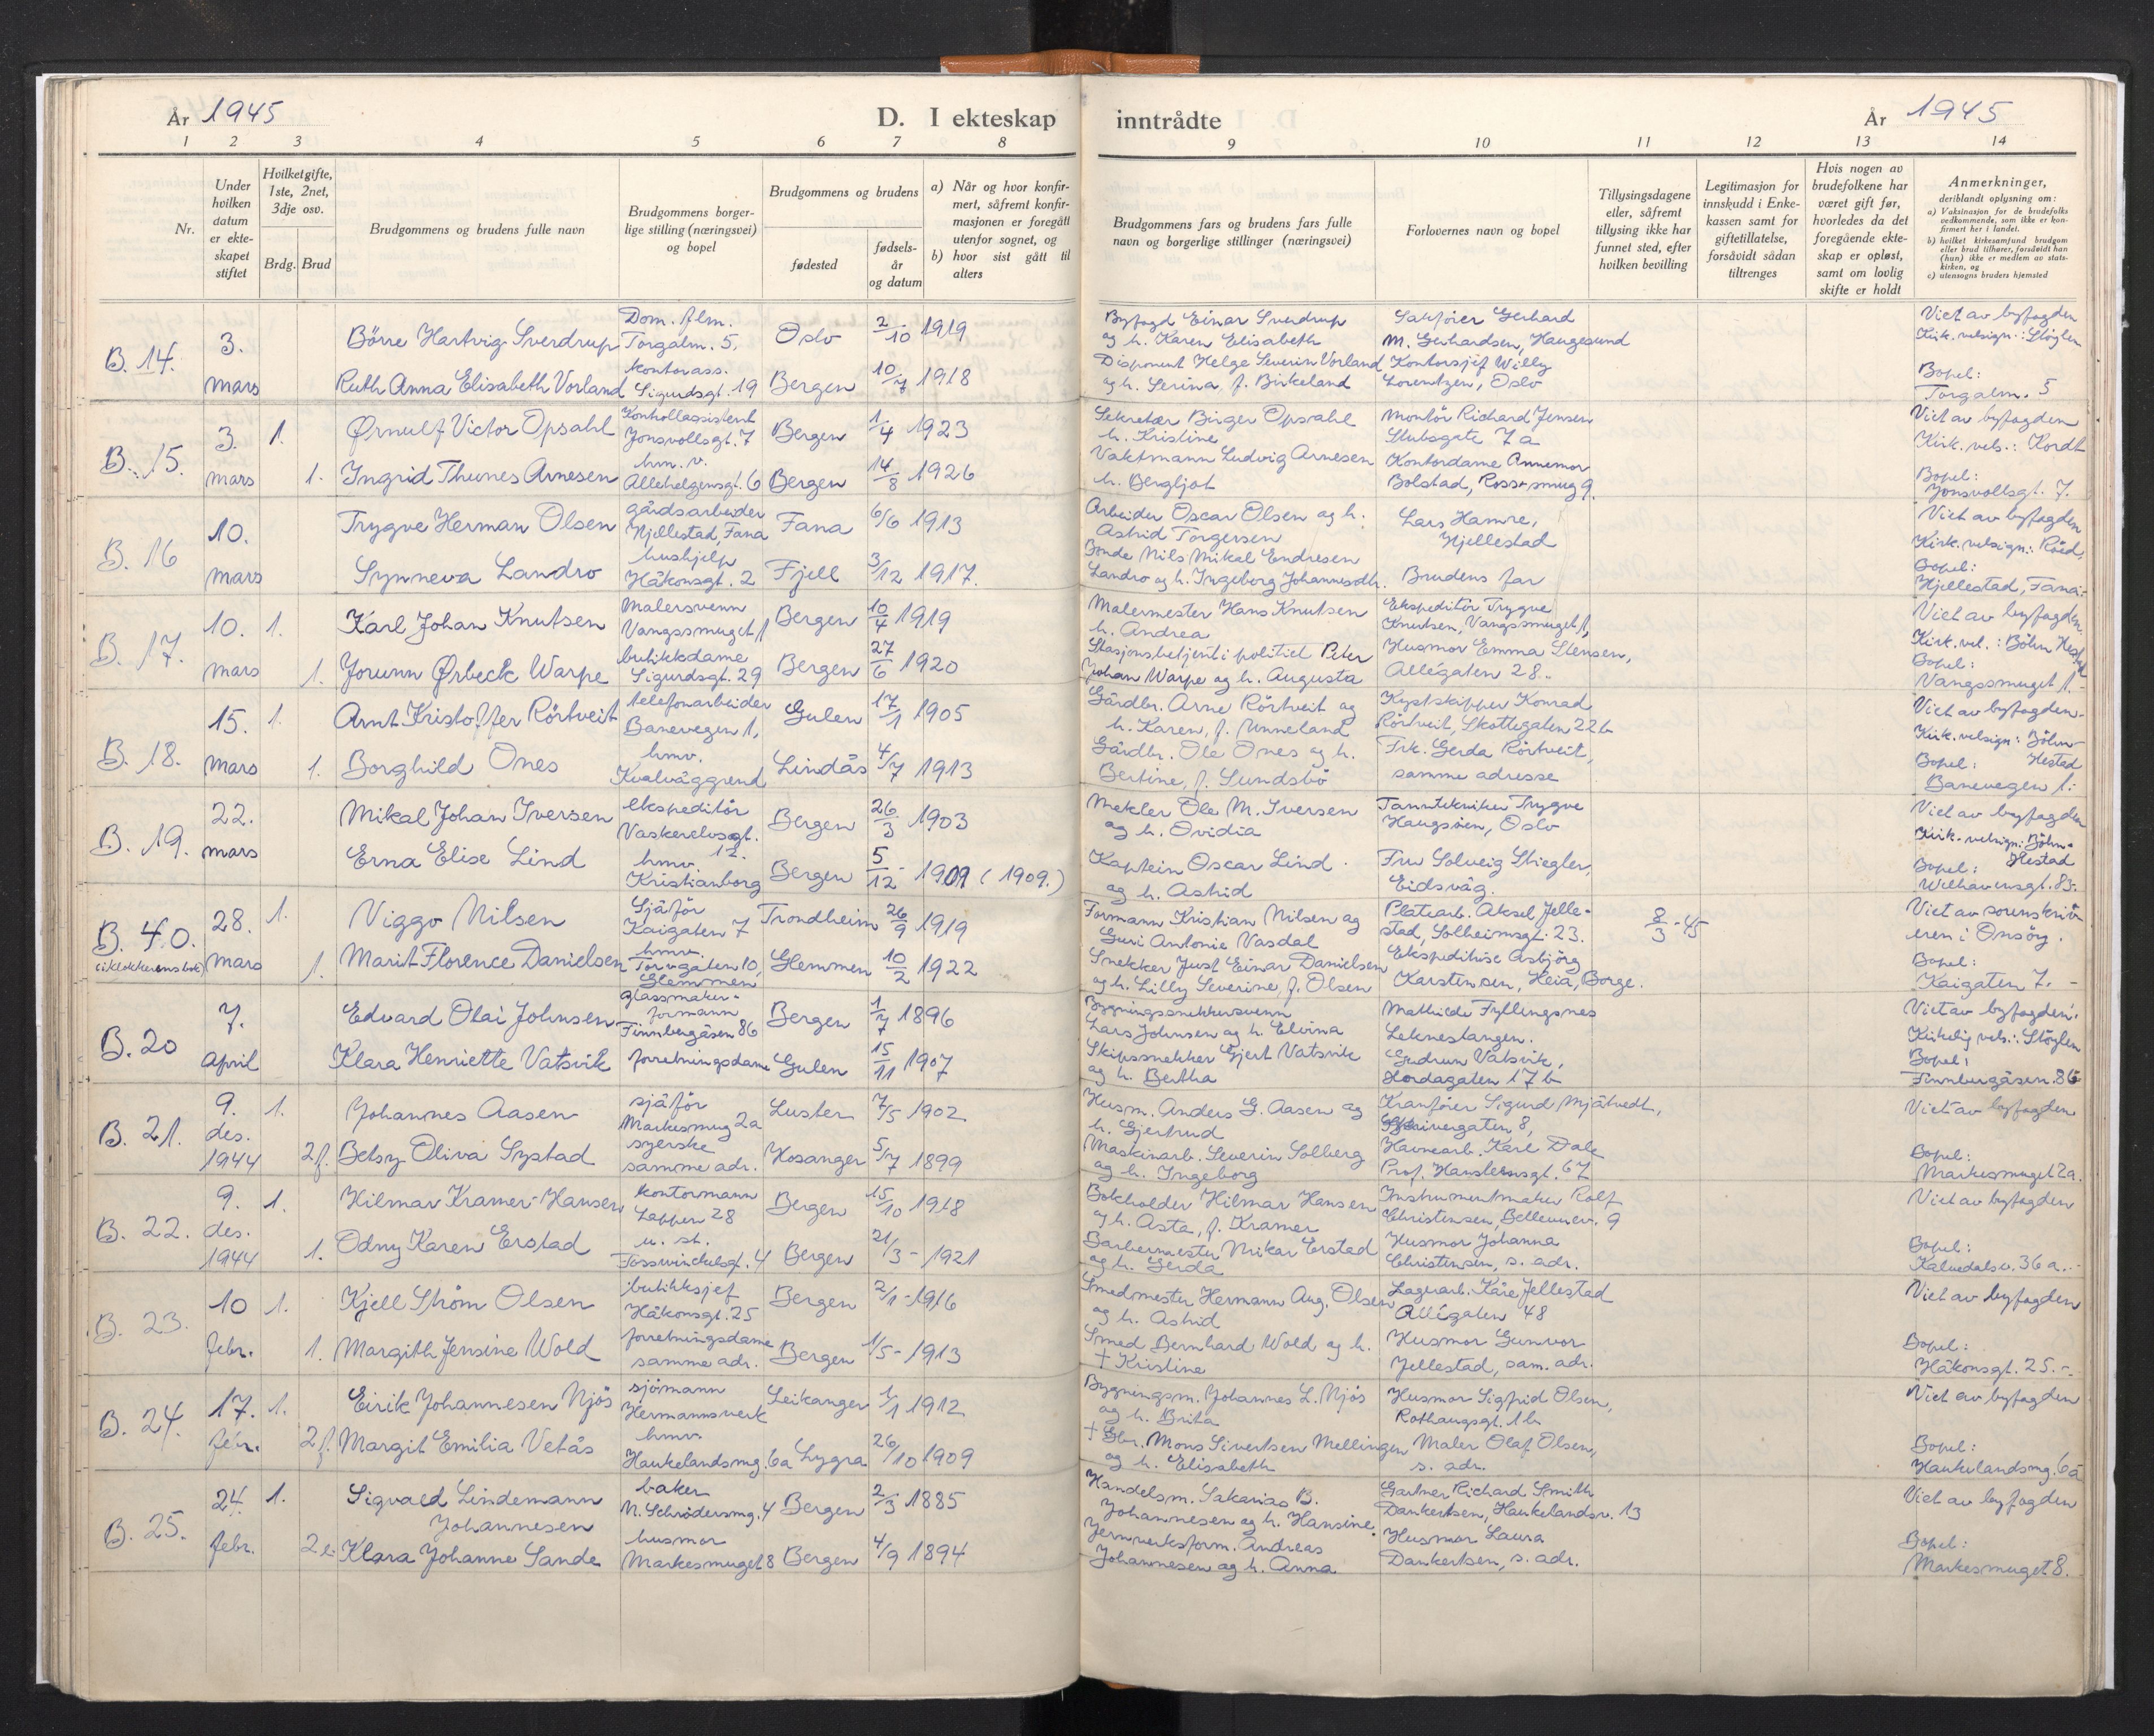 År 1945
D. I ekteskap
inntrådte
År 1945
1 2 3 4 5 6 7 8
9 10 11 12 13 14
Nr.
Under hvilken datum er ekteskapet stiftet
Hvilket gifte, 1ste, 2net, 3dje osv.
Brdg. Brud
Brudgommens og brudens fulle navn
Brudgommens borger-
lige stilling (næringsvei)
og bopel
Brudgommens og brudens
fødested
fødsels-
år
og datum
a) Når og hvor konfir-
mert, såfremt konfir-
masjonen er foregått
utenfor sognet, og
b) hvor sist gått til
alters
Brudgommens fars og brudens fars fulle
navn og borgerlige stillinger (næringsvei)
Forlovernes navn og bopel
Tillysingsdagene
eller, såfremt
tillysing ikke har
funnet sted, efter
hvilken bevilling
Legitimasjon for
innskudd i Enke-
kassen samt for
giftetillatelse,
forsåvidt sådan
tiltrenges
Hvis nogen av
brudefolkene har
været gift før,
hvorledes da det
foregående ekte-
skap er opløst,
samt om lovlig
skifte er holdt
Anmerkninger,
deriblandt oplysning om:
a) Vaksinasjon for de brudefolks
vedkommende, som ikke er kon-
firmert her i landet.
b) hvilket kirkesamfund brudgom
eller brud tilhører, forsåvidt han
(hun) ikke er medlem av stats-
kirken, og
c) utensogns bruders hjemsted
B. 14. 3. mars
Börre Hartvig Sverdrup
Dom. flm.
Torgalm. 5,
Oslo 2/10 1919
Ruth Anna Elisabeth Vorland
kontorass.
Sigurdsgt. 19
Bergen 10/7 1918
Byfogd Einar Sverdrup
og h. Karen Elisabeth
Disponent Helge Severin Vorland
og h. Serina, f. Birkeland
Sakförer Gerhard
M. Gerhardsen, Haugesund
Kontorsjef Willy
Lorentzen, Oslo
Viet av byfogden
Kirk. velsign.: Stöylen
Bopel:
Torgalm. 5
B. 15. 3. mars
1. Ørnulf Victor Opsahl
Kontrollassistent
Jonsvollsgt. 7
Bergen 1/4 1923
1. Ingrid Thunes Arnesen
hm. v.
Allehelgensgt. 6
Bergen 14/8 1926
Sekretær Birger Opsahl
h. Kristine
Vaktmann Ludvig Arnesen
h. Bergljot
Montör Richard Jensen
Stubsgate 7a
Kontordame Annemor
Bolstad, Rossesmug 9.
Viet av byfogden
Kirk. vels.: Kordt
Bopel:
Jonsvollsgt. 7.
B. 16 10. mars
Trygve Herman Olsen
gårdsarbeider
Hjellestad, Fana
Fana 6/6 1913
Synneva Landro
hushjelp
Håkonsgt. 2
Fjell 3/12 1917.
Arbeider Oscar Olsen og h.
Astrid Torgersen
Bonde Nils Mikal Endresen
Landro og h. Ingeborg Johannesdtr.
Lars Hamre,
Hjellestad
Brudens far
Viet av byfogden
Kirk. velsign.: Röed,
Bopel:
Hjellestad, Fana.-
B. 17. 10. mars
1. Karl Johan Knutsen
Malersvenn
Vangssmuget 1
Bergen 10/4 1919
1. Jorunn Ørbeck Warpe
butikkdame
Sigurdsgt. 29
Bergen 27/6 1920
Malermester Hans Knutsen
h. Andrea
Stasjonsbetjent i politiet Peter
Johan Warpe og h. Augusta
Ekspeditör Trygve
Knutsen, Vangssmuget 1,
Husmor Emma Stensen,
Allégaten 28..
Viet av byfogden.
Kirk. vel.: Böhn Hestad
Bopel:
Vangssmuget 1.-
B. 18. 15. mars
1. Arnt Kristoffer Rörtveit
telefonarbeider
Banevegen 1,
Gulen 17/1 1905
1. Borghild Ones
hmv.
Kvalvåggrend
Lindås 4/7 1913
Gårdbr. Arne Rörtveit og
h. Karen, f. Unneland
Gårdbr. Ole Ones og h.
Bertine, f. Sundsbö
Kystskipper Konrad
Rörtveit, Skottegaten 22b
Frk. Gerda Rörtveit,
samme adresse
Viet av byfogden-
Kirk. velsign: Böhn-
Hestad
Bopel:
Banevegen 1.-
B. 19. 22. mars
Mikal Johan Iversen
ekspeditör
Vaskerelvsgt.
12.
Bergen 26/3 1903
Erna Elise Lind
hmv.
Kristianborg
Bergen 5/12 1909 (1909.)
Mekler Ole M. Iversen
og h. Ovidia
Kaptein Oscar Lind
og h. Astrid
Tanntekniker Trygve
Haugsöen, Oslo
Fru Solveig Stiegler,
Eidsvåg.
Viet av byfogden
Kirk.-velsign: Böhn-
Hestad
Bopel:
Welhavensgt. 83.-
B. 40. (i klokkerens bok) 28. mars
1. Viggo Nilsen
Sjåför
Kaigaten 7
Trondheim 26/9 1919
1. Marit Florence Danielsen
hmv.
Torvgaten 10,
Glemmen
Glemmen 10/2 1922
Formann Kristian Nilsen og
Guri Antonie Vasdal
Snekker Just Einar Danielsen
og h. Lilly Severine, f. Olsen
Platearb. Aksel Jelle-
stad, Solheimsgt. 23.
Ekspeditrise Asbjörg
Karstensen, Heia, Borge.
8/3-45
Viet av sorenskriv-
eren i Onsöy.
Bopel:
Kaigaten 7. -
B. 20 7. april
Edvard Olai Johnsen
glassmaker-
formann
Finnbergåsen 86
Bergen 1/7 1896
Klara Henriette Vatsvik
forretningsdame
Gulen 15/11 1907
Bygningssnekkersvenn
Lars Johnsen og h. Elvina
Skipssnekker Gjert Vatsvik
og h. Bertha
Mathilde Fyllingsnes
Leknestangen.
Gudrun Vatsvik,
Hordagaten 17b
Viet av byfogden.
Kirkelig vels.: Stöylen
Bopel:
Finnbergåsen. 86
B. 21. 9. des. 1944
1. Johannes Aasen
sjåför
Markesmug 2a
Luster 7/5 1902
2 f. Betsy Oliva Systad
syerske
samme adr.
Hosanger 5/7 1899
Husm. Anders G. Aasen og
h. Gjertrud
Maskinarb. Severin Solberg
og h. Ingeborg
Kranförer Sigurd Mjåtvedt,
Skrivergaten 8,
Havnearb. Karl Dale
Prof. Hansteensgt. 67
Viet av byfogden
Bopel:
Markesmuget 2a.
B. 22. 9. des. 1944
1. Hilmar Kramer-Hansen
kontormann
Lappen 28
Bergen 15/10 1918
1. Odny Karen Erstad
u. st.
Fosswinckelsgt. 4
Bergen 21/3 - 1921
Bokholder Hilmar Hansen
og h. Asta, f. Kramer
Barbermester Mikar Erstad
og h. Gerda
Instrumentmaker Rolf
Christensen, Bellevuev. 9
Husmor Johanna
Christensen, s. adr.
Viet av byfogden
Bopel:
Kalvedalsv. 36a.-
B. 23. 10 febr.
1. Kjell Ström Olsen
butikksjef
Håkonsgt. 25
Bergen 2/1-1916
1. Margith Jensine Wold
forretningsdame
samme adr.
Bergen 1/5-1913
Smedmester Hermann Aug. Olsen
og h. Astrid
Smed Bernhard Wold og h.
† Kristine
Lagerarb. Kåre Jellestad
Allégaten 48
Husmor Gunvor
Jellestad, sam. adr.
Viet av byfogden
Bopel:
Håkonsgt. 25.-
B. 24. 17. febr.
1. Eirik Johannesen Njös
sjömann
Hermannsverk
Leikanger 1/1 1912
2 f. Margit Emilia Vetås
hmv.
Haukelandsmg. 6a
Lygra 26/10 1909
Bygningsm. Johannes L. Njös
og h. Brita
† Gbr. Mons Sivertsen Mellingen
og h. Elisabeth
Husmor Sigfrid Olsen,
Rothaugsgt. 1b
Maler Olaf Olsen,
s. adr.
Viet av byfogden
Bopel:
Haukelandsmg. 6a
B. 25. 24. febr.
1. Sigvald Lindemann
Johannesen
baker
N. Schrödersmg. 4
Bergen 2/3 1885
2 e. Klara Johanne Sande
husmor
Markesmuget 8
Bergen 4/9 1894
Handelsm. Sakarias B.
Johannesen og h. Hansine.
Jernverksform. Andreas
Johannesen og h. Anna
Gartner Richard Smith
Dankertsen, Haukelandsv. 13
Husmor Laura
Dankertsen, s. adr.
Viet av byfogden
Bopel:
Markesmuget 8.